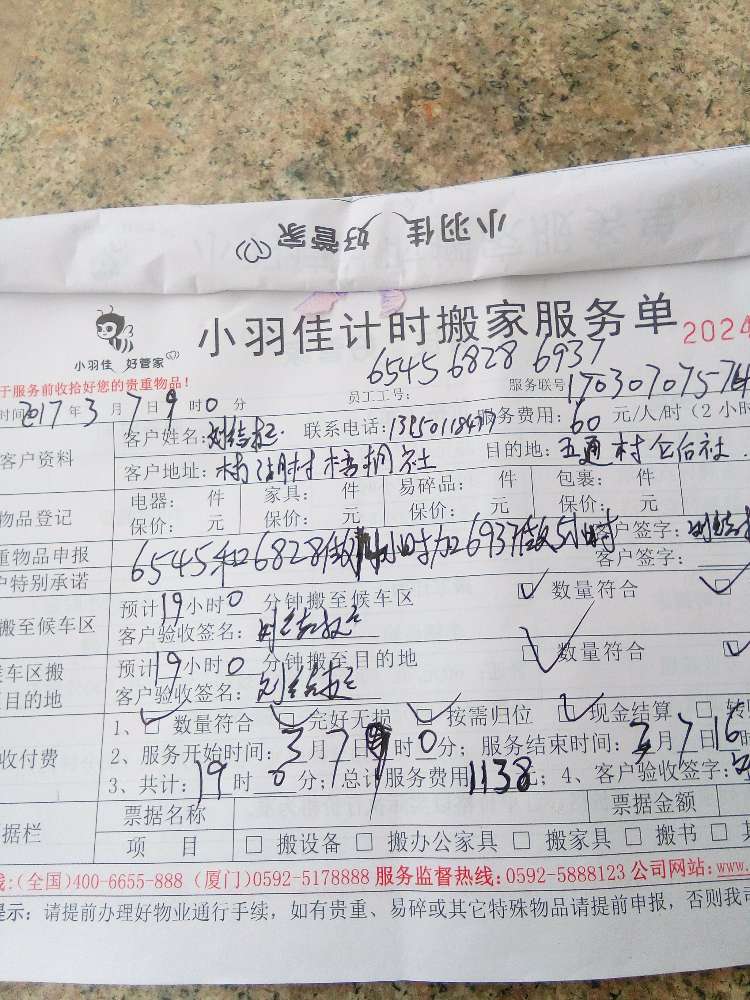 小羽佳 好管家
小羽佳 好管家
小羽佳计时搬家服务单 2024
6545 6828 6937
于服务前收拾好您的贵重物品！ 员工工号： 服务联号
时间2017年3月7日9时0分
客户资料 客户姓名： 联系电话： 服务费用：60元/人/时（2小时
客户地址： 村 目的地：五通村仑后社
物品登记 电器： 件 家具： 件 易碎品： 件 包裹： 件
保价： 元 保价： 元 保价： 元 保价： 元
重物品申报 6545和6828做 小时加6937做5小时 客户签字：
户特别承诺 客户签字：
搬至候车区 预计19小时0分钟搬至候车区 数量符合
客户验收签名：
候车区搬 预计19小时0分钟搬至目的地 数量符合
目的地 客户验收签名：
收付费 1、 数量符合 完好无损 按需归位 现金结算
2、服务开始时间：3月7日9时0分；服务结束时间：3月7日16时
3、共计：19时0分；总计服务费用1138元；4、客户验收签字：
据栏 票据名称 票据金额
项 目 搬设备 搬办公家具 搬家具 搬书
线:(全国)400-6655-888 (厦门)0592-5178888 服务监督热线:0592-5888123 公司网站:www.
提示：请提前办理好物业通行手续，如有贵重、易碎或其它特殊物品请提前申报，否则我司